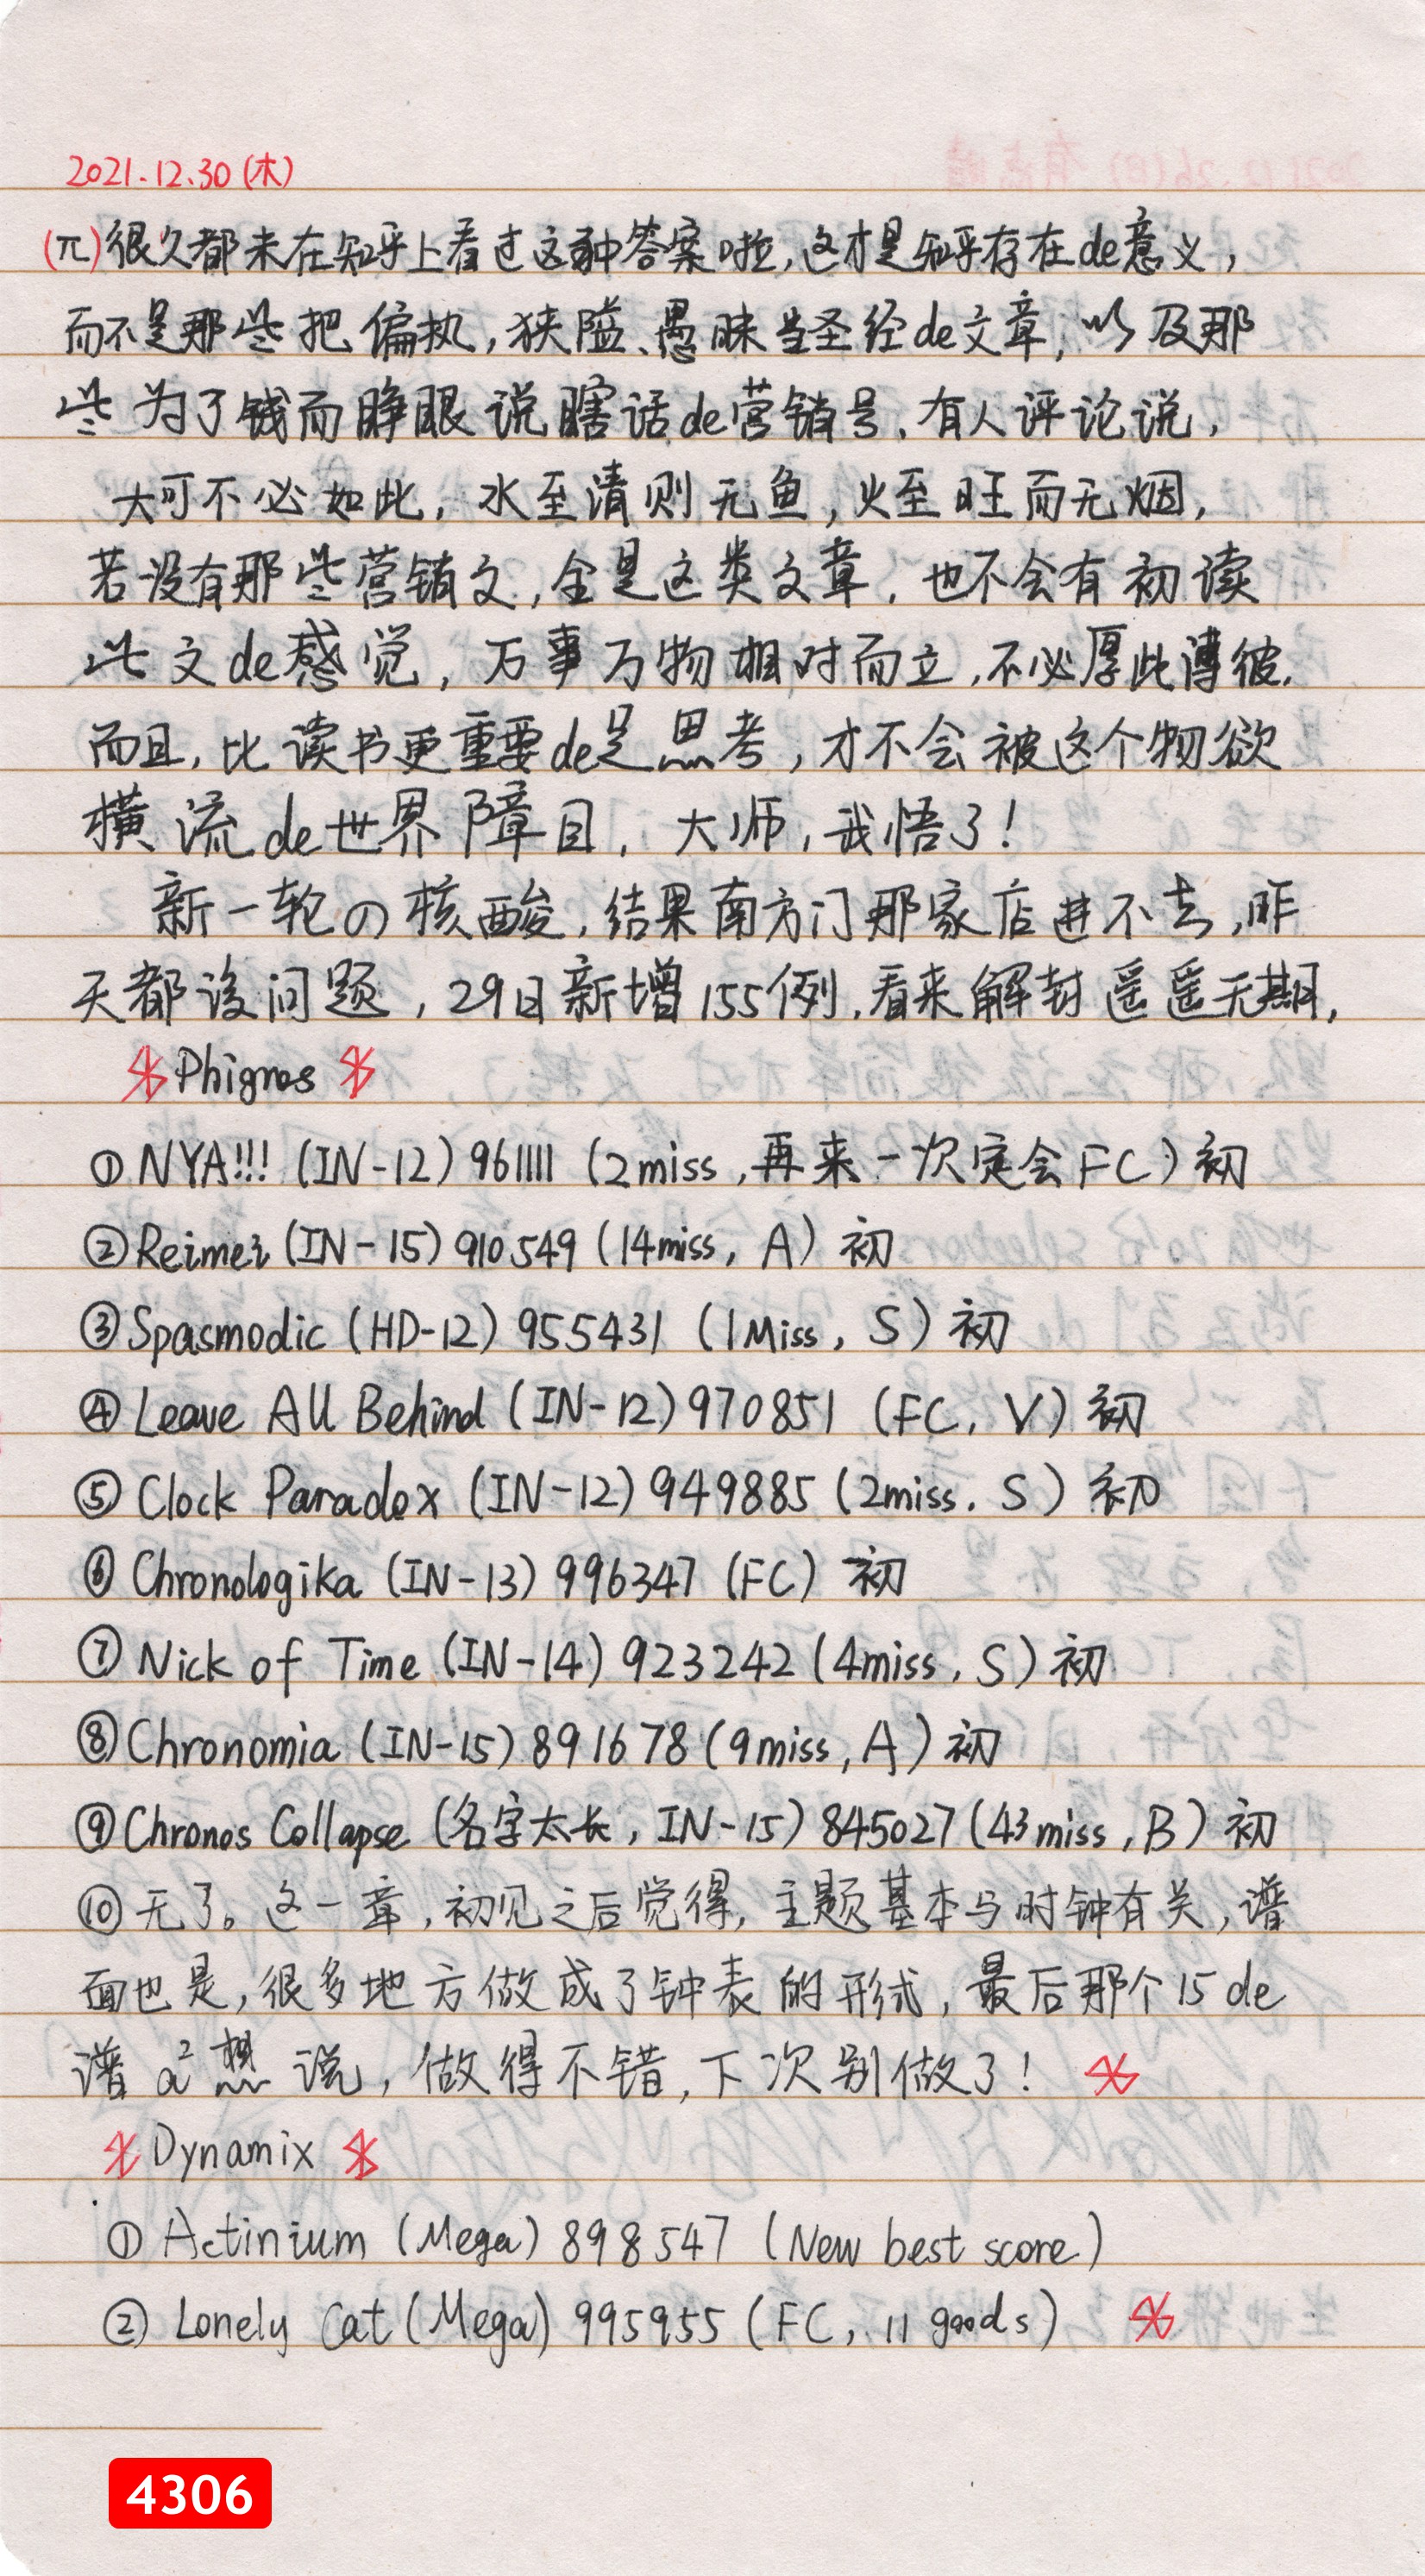 2021.12.30(木)
(π)很久都未在知乎上看过这种答案啦,这才是知乎存在de意义,
而不是那些把偏执,狭隘、愚昧当圣经de文章,以及那
些为了钱而睁眼说瞎话de营销号.有人评论说,
大可不必如此,水至清则无鱼,火至旺而无烟,
若没有那些营销文,全是这类文章,也不会有初读
此文de感觉,万事万物相对而立,不必厚此薄彼.
而且,比读书更重要de是思考,才不会被这个物欲
横流de世界障目,大师,我悟了!
新一轮の核酸,结果南方门那家店进不去,昨
天都没问题,29日新增155例,看来解封遥遥无期,
※Phigros※
①NYA!!! (IN-12) 961111 (2miss,再来一次定会FC)初
②Reimei (IN-15) 910549 (14miss, A) 初
③Spasmodic (HD-12) 955431 (1Miss, S) 初
④Leave All Behind (IN-12) 970851 (FC, V) 初
⑤Clock Paradox (IN-12) 949885 (2miss. S) 初
⑥Chronologika (IN-13) 996347 (FC) 初
⑦Nick of Time (IN-14) 923242 (4miss, S) 初
⑧Chronomia (IN-15) 891678 (9miss, A) 初
⑨Chronos Collapse (名字太长, IN-15) 845027 (43miss, B) 初
⑩无了。这一章,初见之后觉得,主题基本与时钟有关,谱
面也是,很多地方做成了钟表的形式,最后那个15de
谱a²想说,做得不错,下次别做了! ※
※Dynamix※
①Actinium (Mega) 898547 (New best score)
②Lonely Cat (Mega) 995955 (FC, 11 goods) ※
4306